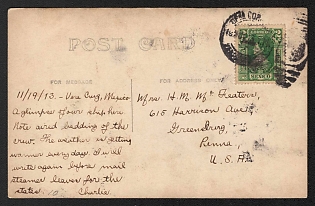 POST CARD
FOR MESSAGE
FOR ADDRESS ONLY
11/19/13. - Vera Cruz, Mexico
A glimpse of our ship here
Note aired bedding of the
crew. The weather is getting
warmer every day. I will
write again before mail
steamer leaves for the
states. Charlie.
Mrs. H. M.
615 Harrison Ave.
Greensburg,
Penna.
U. S. A.